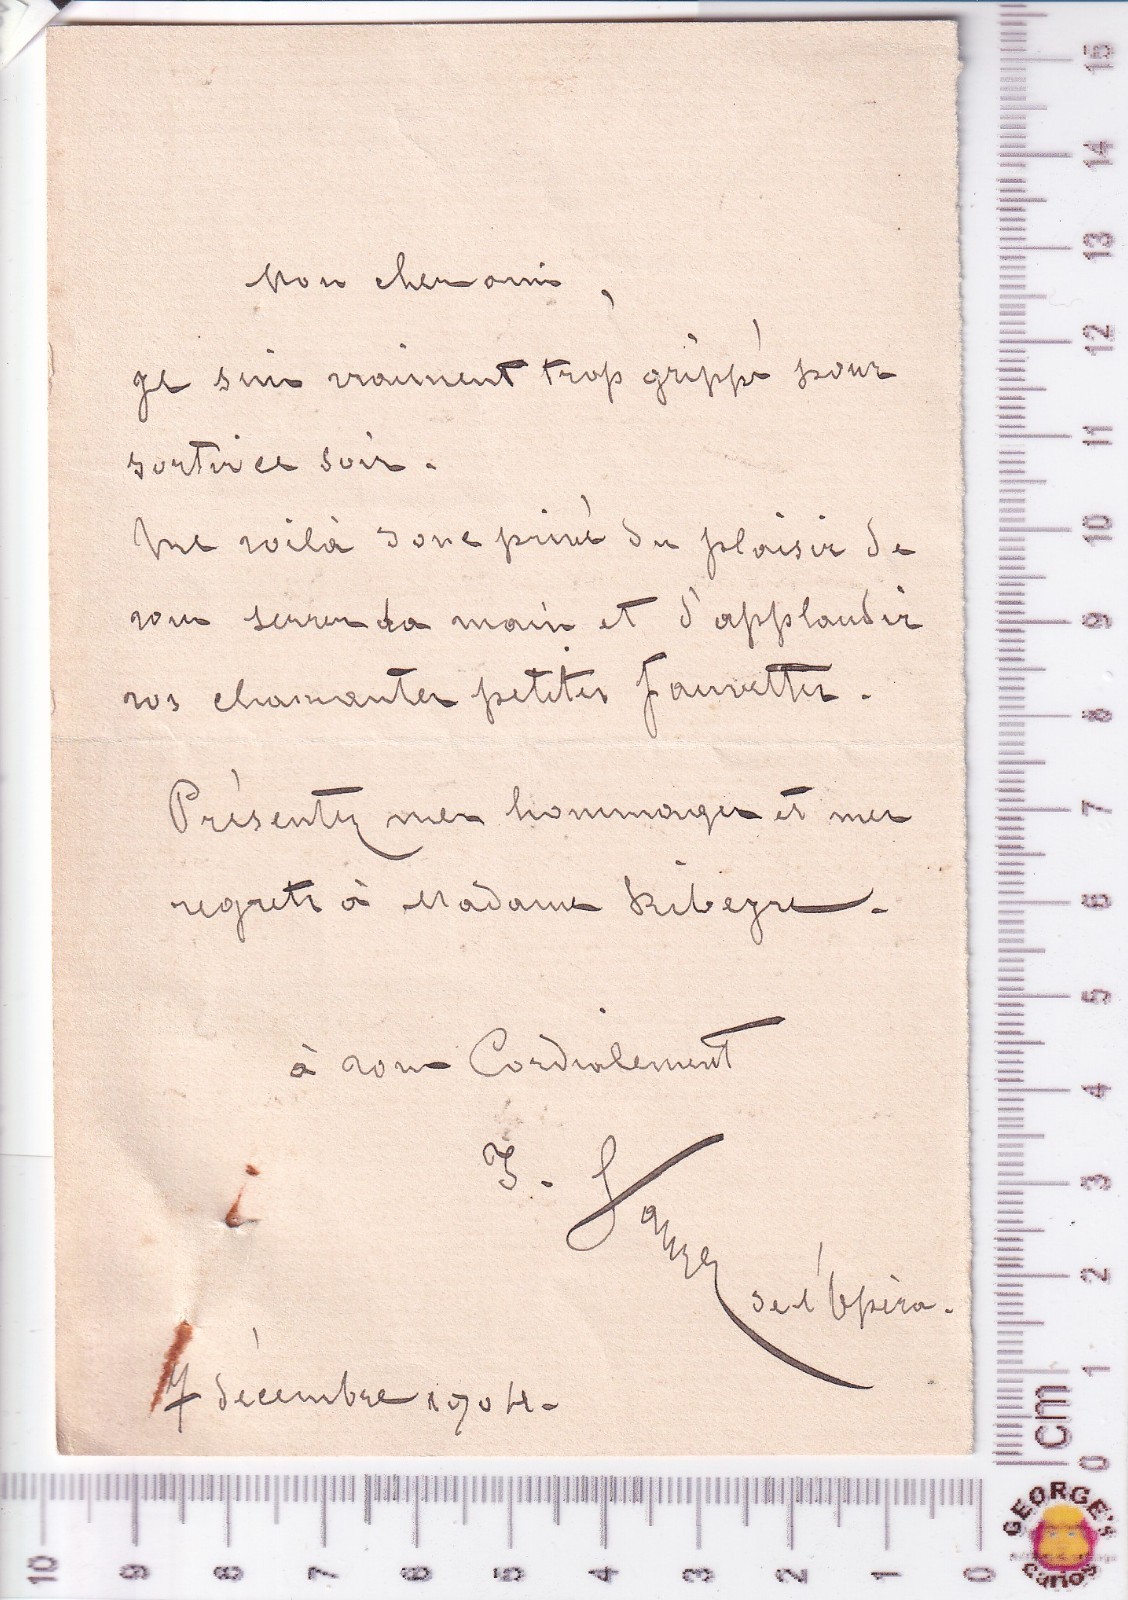 Mon cher ami,
Je suis vraiment trop grippé pour
sortir ce soir.
Me voilà donc privé du plaisir de
vous serrer la main et d'applaudir
vos charmantes petites fauvettes.
Présentez mes hommages et mes
regrets à Madame Ribeyre.
à vous Cordialement
de l'Opéra.
7 décembre 1904.
15
14
13
12
11
10
9
8
7
6
5
4
3
2
1
0
cm
10 9 8 7 6 5 4 3 2 1 0
GEORGE'S
Curios